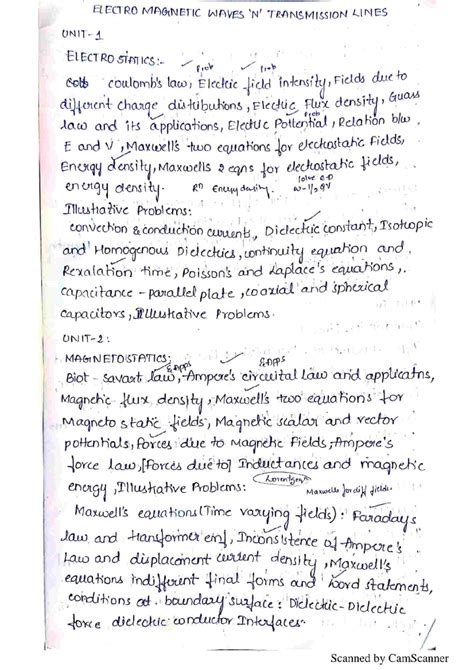 ELECTRO MAGNETIC WAVES 'N' TRANSMISSION LINES
UNIT-1
ELECTROSTATICS:-
prob prob
coulomb's law, Electric field intensity, Fields due to
different charge distributions, Electric Flux density, Guass
law and its applications, Electric Pottential, Relation b/w
prob
E and V, Maxwell's two equations for electrostatic Fields,
Energy density, Maxwell's 2 eqns for electrostatic fields,
energy density. Energy density.
Illustrative Problems:
convection & conduction currents, Dielectric constant, Isotropic
and Homogenous Dielectrics, continuity equation and
Rexalation time, Poisson's and Laplace's equations,
capacitance - parallel plate, coaxial and spherical
capacitors, Illustrative Problems.
UNIT-2:
MAGNETOSTATICS:
&Apps &Apps
Biot-savart law, Ampere's circuital law and applicatns,
Magnetic flux density, Maxwell's two equations for
Magneto static fields, Magnetic scalar and vector
pottentials, Forces due to Magnetic Fields, Ampere's
force law, [Forces due to] Inductances and magnetic
energy, Illustrative Problems: Maxwells for diff fields.
Maxwell's equations (Time varying fields): Faradays
law and transformer emf, Inconsistence of Ampere's
Law and displacment current density, Maxwell's
equations indifferent final forms and word statements,
conditions at boundary surface: Dielectric-Dielectric
force dielectric conductor Interfaces.
Scanned by CamScanner